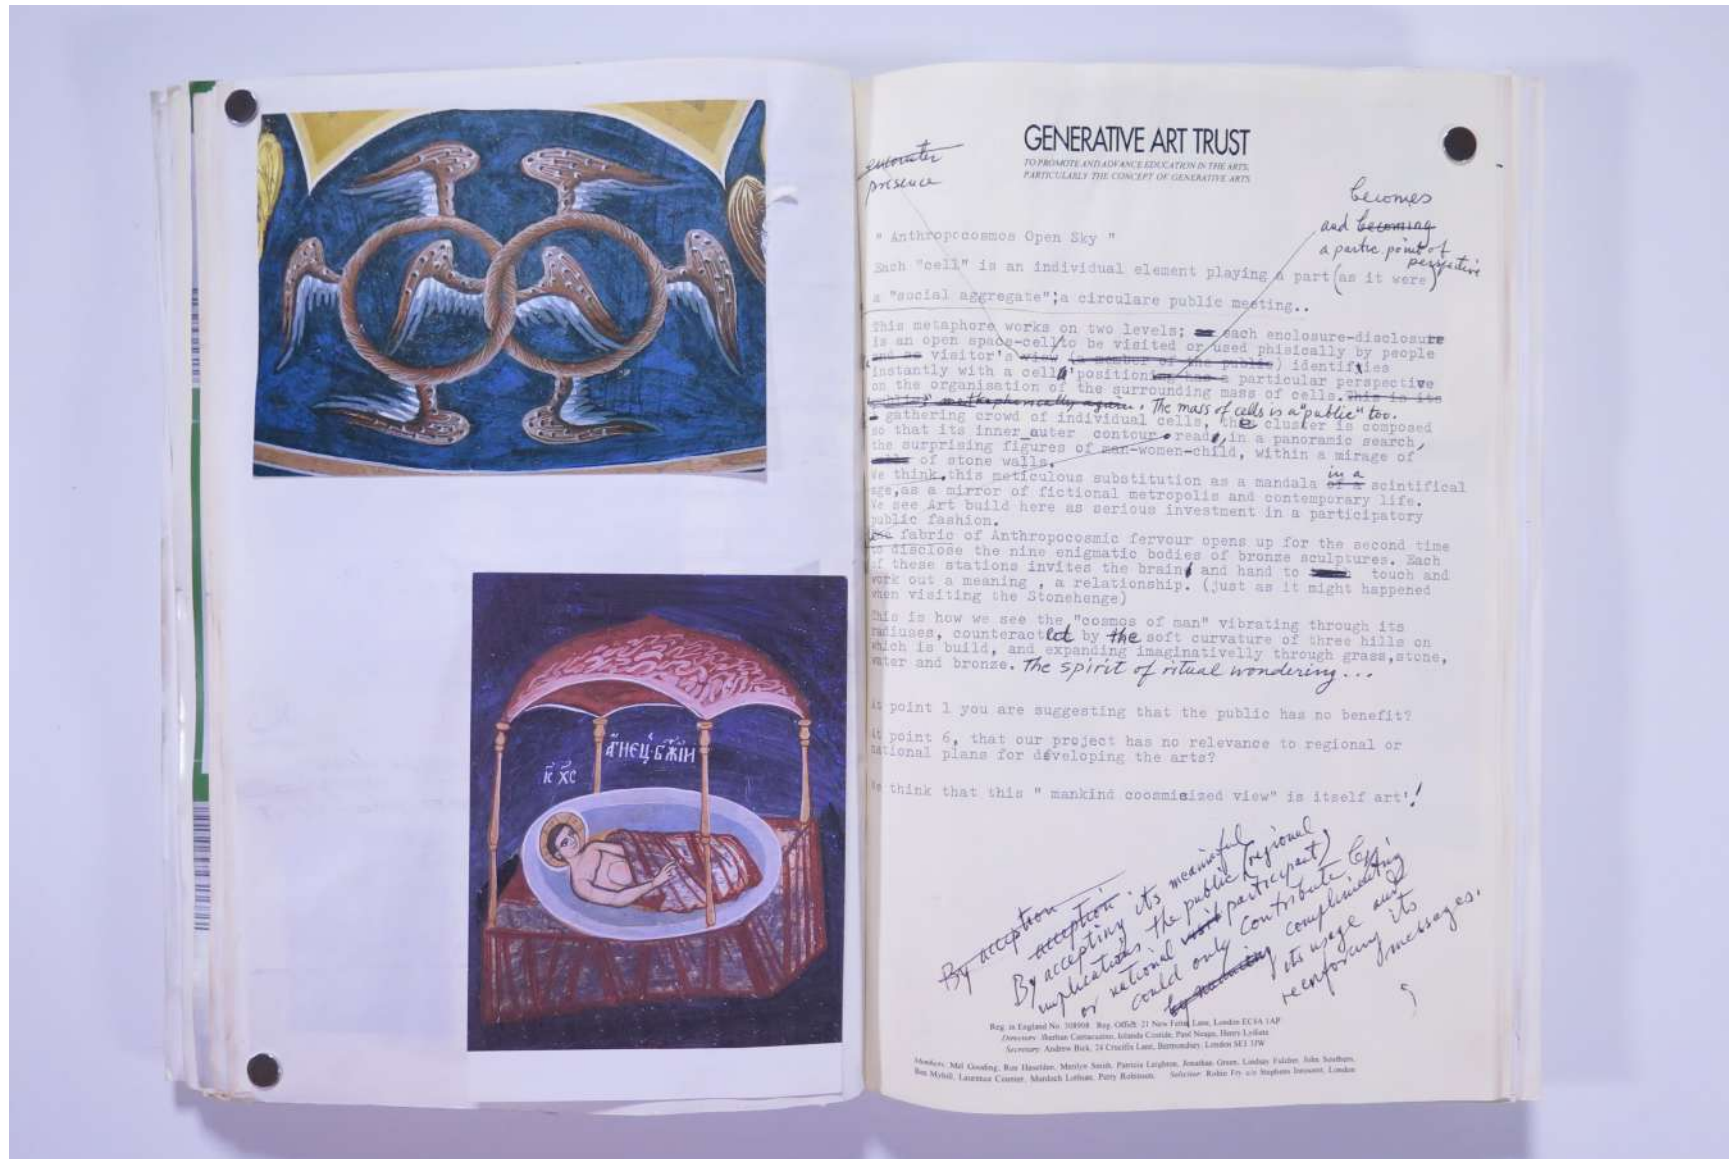 АНЕЦ·БЖІЙ
ІС ХС
GENERATIVE ART TRUST
TO PROMOTE AND ADVANCE EDUCATION IN THE ARTS,
PARTICULARLY THE CONCEPT OF GENERATIVE ARTS
encounter
presence
becomes
and becoming
a partic. point of
perspective
" Anthropocosmos Open Sky "
Each "cell" is an individual element playing a part (as it were)
a "social aggregate"; a circulare public meeting..
This metaphore works on two levels; each enclosure-disclosure
is an open space-cell to be visited or used phisically by people
visitor's view (a member of the public) identifies
instantly with a cell's positioning has a particular perspective
on the organisation of the surrounding mass of cells. This is its
metkaphorically again. The mass of cells is a "public" too.
gathering crowd of individual cells, the cluster is composed
so that its inner auter contour read, in a panoramic search,
the surprising figures of man-women-child, within a mirage of
of stone walls.
We think, this meticulous substitution as a mandala in a scintifical
age, as a mirror of fictional metropolis and contemporary life.
We see Art build here as serious investment in a participatory
public fashion.
The fabric of Anthropocosmic fervour opens up for the second time
to disclose the nine enigmatic bodies of bronze sculptures. Each
of these stations invites the brain and hand to touch and
work out a meaning , a relationship. (just as it might happened
when visiting the Stonehenge)
This is how we see the "cosmos of man" vibrating through its
radiuses, counteracted by the soft curvature of three hills on
which is build, and expanding imaginativelly through grass,stone,
water and bronze. The spirit of ritual wondering...
At point 1 you are suggesting that the public has no benefit?
At point 6, that our project has no relevance to regional or
national plans for developing the arts?
We think that this " mankind coosmicized view" is itself art'!
By acception
acception
By accepting its meaningful
implications the public (regional
or national visit participant)
could only contribute by
complimenting
its usage and
reenforcing its
messages.
Reg. in England No. 308908 Reg. Office: 21 New Fetter Lane, London EC4A 1AP
Directors: Sherban Cantacuzino, Iolanda Costide, Paul Neagu, Henry Lydiate
Secretary: Andrew Bick, 24 Crucifix Lane, Bermondsey, London SE1 3JW
Members: Mel Gooding, Ron Haselden, Marilyn Smith, Patrizia Leighton, Jonathan Green, Lindsay Fulcher, John Southern,
Ben Myhill, Laurence Counter, Murdoch Lothian, Perry Robinson. Solicitor: Robin Fry c/o Stephens Innocent, London